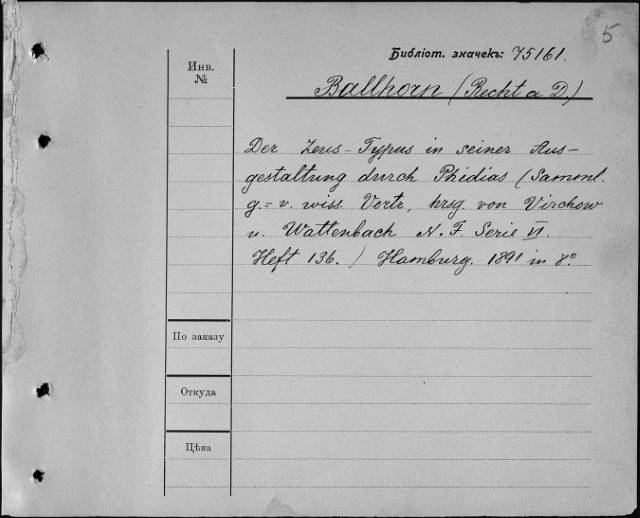 5
Библіот. значекъ: 75161.
Инв.
№
Ballhorn (Recht a D.)
Der Zeus-Typus in seiner Aus-
gestaltung durch Phidias (Samml.
g.=v. wiss. Vortr., hrsg. von Virchow
u. Wattenbach N. F. Serie VI.
Heft 136.) Hamburg. 1891 in 8°
По заказу
Откуда
Цѣна